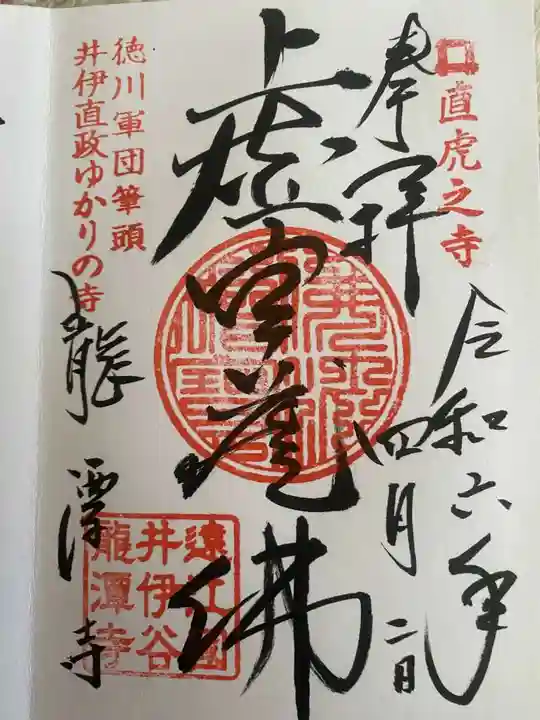 直虎之寺
奉拝
令和六年
四月二日
虚空蔵佛
徳川軍団筆頭
井伊直政ゆかりの寺
龍潭寺
遠江國
井伊谷
龍潭寺